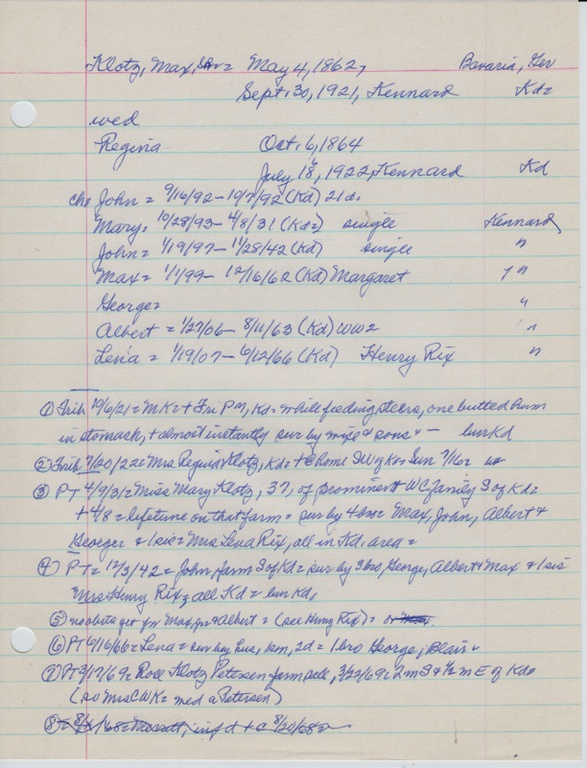 Klotz, Max, Sr = May 4, 1862, Bavaria, Ger
Sept. 30, 1921, Kennard Kd=
wed
Regina Oct. 6, 1864
July 18, 1922, Kennard Kd
ch= John = 9/16/92 - 10/7/92 (Kd) 21d.
Mary, 10/28/93 - 4/8/31 (Kd=) single Kennard,
John = 1/19/97 - 11/28/42 (Kd) single "
Max = 1/1/99 - 12/16/62 (Kd) Margaret "
George = "
Albert = 1/27/06 - 8/11/63 (Kd) WW2 "
Lena = 1/19/07 - 6/12/66 (Kd) Henry Rix "
① Trib 10/6/21 = MK = + Fri PM, Kd = while feeding steers, one butted him
in stomach, + almost instantly sur by wife & sons = - bur Kd
② Trib 7/20/22 = Mrs Regina Klotz, Kd = + @ home SW of K on Sun 7/16 =
③ PT 4/9/31 = Miss Mary Klotz, 37, of prominent WC family S of Kd =
+ 4/8 = lifetime on that farm = sur by 4 bro = Max, John, Albert &
George & 1 sis = Mrs Lena Rix, all in Kd. area =
④ PT = 12/3/42 = John, farm S of Kd = sur by 3 bro, George, Albert & Max & 1 sis
Mrs Henry Rix, all Kd = bur Kd,
⑤ no obits get for Max, Jr & Albert = (see Henry Rix) =
⑥ PT 6/16/66 = Lena = sur by hus, 1 son, 2d = 1 bro George, Blair
⑦ PT 3/17/69 = Rose Klotz Petersen farm sale, 3/22/69 = 2m S & 1/2 m E of Kd =
(so Mrs CWK = wed a Petersen)
⑧ = 8/ /68 = inf d + @ 8/20/68 =